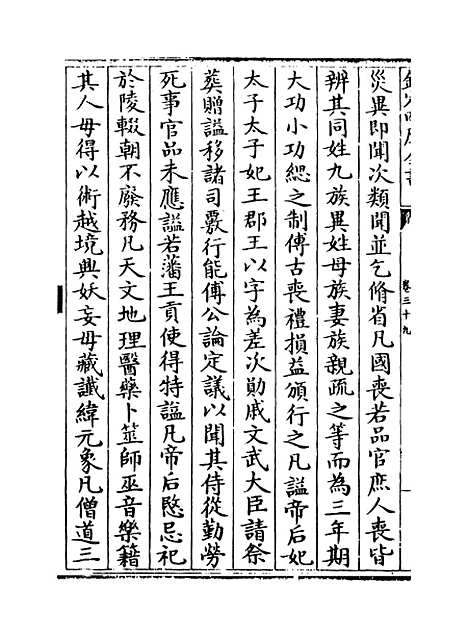 卷三十九
災異即聞次類聞並乞脩省凡國喪若品官庶人喪皆
辨其同姓九族異姓母族妻族親疏之等而為三年期
大功小功緦之制傅古喪禮損益頒行之凡諡帝后妃
太子太子妃王郡王以字為差次勛戚文武大臣請祭
葬贈諡移諸司覈行能傅公論定議以聞其侍從勤勞
死事官品未應諡若藩王貢使得特諡凡帝后愍忌祀
於陵輟朝不廢務凡天文地理醫藥卜筮師巫音樂籍
其人毋得以術越境與妖妄毋藏讖緯元象凡僧道三